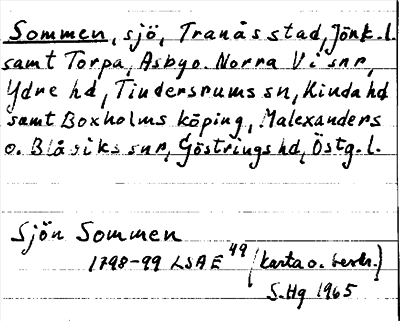 Sommen, sjö, Tranås stad, Jönk.l.
samt Torpa, Asby o. Norra Vi snr,
Ydre hd, Tindersrums sn, Kinda hd
samt Boxholms köping, Malexanders
o. Blåviks snr, Göstrings hd, Östg.l.
Sjön Sommen
1798-99 LSAE 49 (karta o. beskr.)
S.Hg 1965